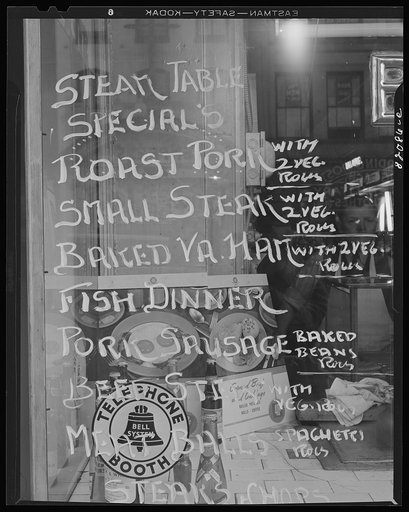 EASTMAN—SAFETY—KODAK 6
STEAM TABLE
SPECIAL'S
ROAST PORK WITH 2 VEG. ROLLS
SMALL STEAK WITH 2 VEG. ROLLS
BAKED VA. HAM WITH 2 VEG. ROLLS
FISH DINNER
PORK SAUSAGE BAKED BEANS ROLLS
BEEF WITH VEG.
MEAT BALLS SPAGHETTI ROLLS
STEAK'S & CHOPS
TELEPHONE
BELL
SYSTEM
BOOTH